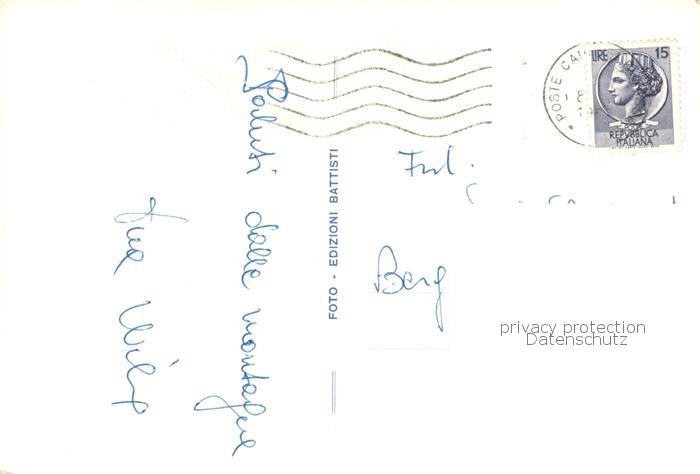 Saluti dalle montagne
LIRE 15
POSTE
REPUBBLICA
ITALIANA
FOTO - EDIZIONI BATTISTI
Frl.
Berg
privacy protection
Datenschutz